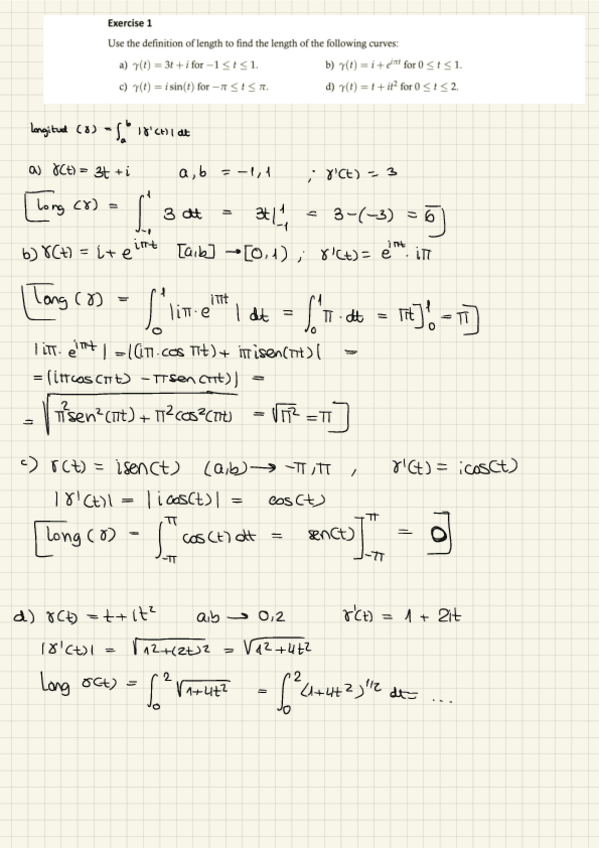 Exercise 1
Use the definition of length to find the length of the following curves:
a) γ(t) = 3t + i for −1 ≤ t ≤ 1.
b) γ(t) = i + e^{iπt} for 0 ≤ t ≤ 1.
c) γ(t) = i sin(t) for −π ≤ t ≤ π.
d) γ(t) = t + it² for 0 ≤ t ≤ 2.
longitud (γ) = ∫_a^b |γ'(t)| dt
a) γ(t) = 3t + i a,b = -1,1 ; γ'(t) = 3
[long (γ) = ∫_{-1}^{1} 3 dt = 3t|_{-1}^{1} = 3-(-3) = 6]
b) γ(t) = i + e^{iπt} [a,b] → [0,1) ; γ'(t) = e^{iπt} · iπ
[long (γ) = ∫_0^1 |iπ·e^{iπt}| dt = ∫_0^1 π·dt = πt]_0^1 = π]
|iπ· e^{iπt}| = |(iπ·cos πt) + iπisen(πt)| =
= |iπcos(πt) - πsen(πt)| =
= √(π²sen²(πt) + π²cos²(πt)) = √π² = π]
c) γ(t) = isen(t) (a,b) → -π,π , γ'(t) = icos(t)
|γ'(t)| = |icos(t)| = cos(t)
[long (γ) = ∫_{-π}^{π} cos(t) dt = sen(t)]_{-π}^{π} = 0]
d) γ(t) = t + it² a,b → 0,2 γ'(t) = 1 + 2it
|γ'(t)| = √(1²+(2t)²) = √(1²+4t²)
Long γ(t) = ∫_0^2 √(1+4t²) = ∫_0^2 (1+4t²)^{1/2} dt = ...